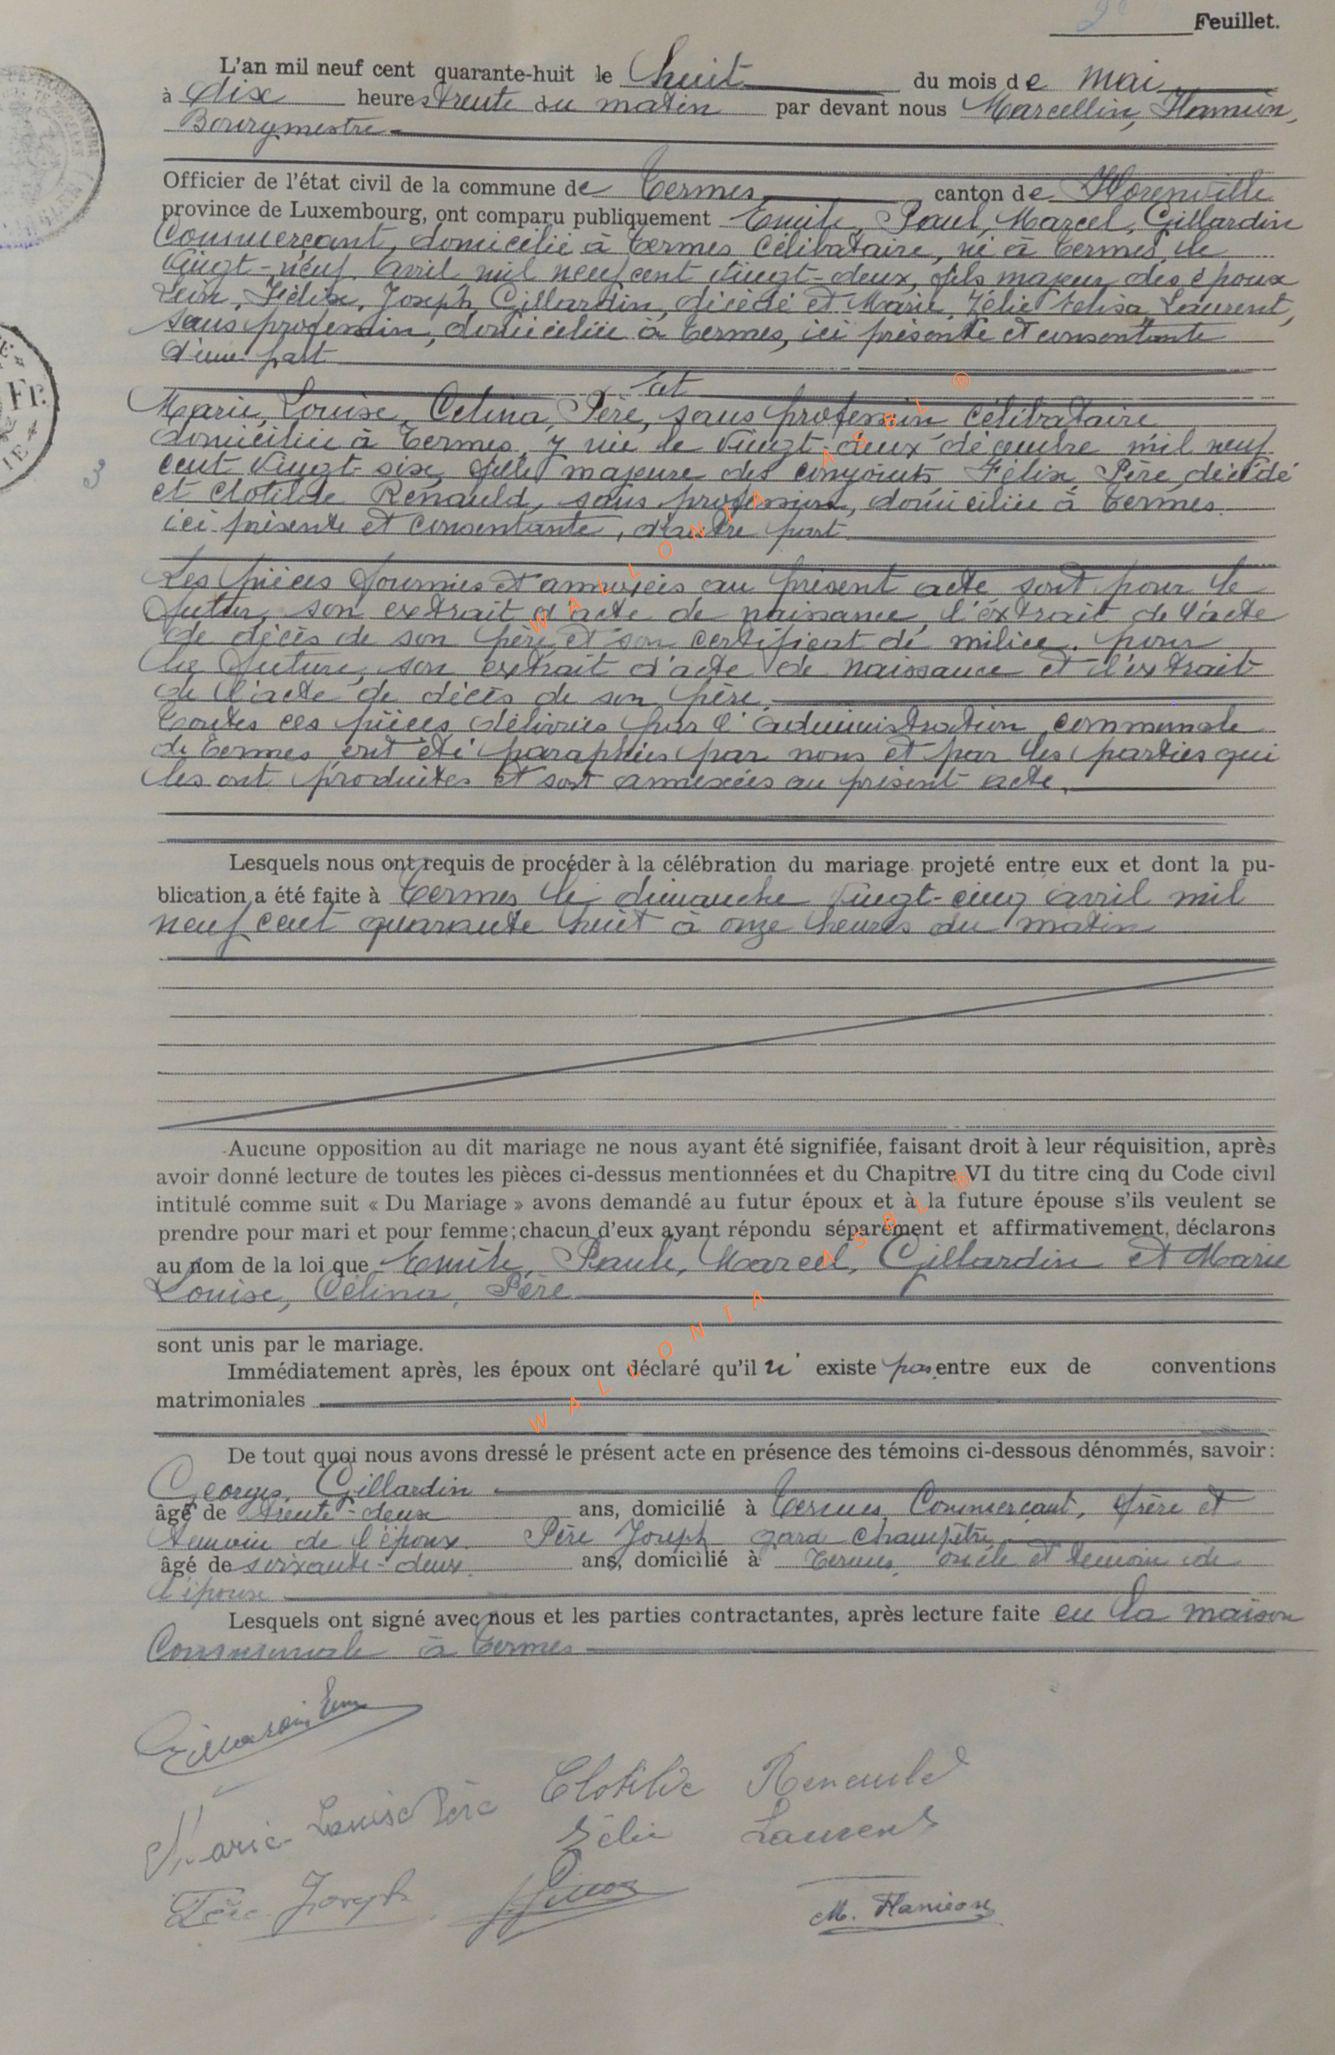 Feuillet.
L'an mil neuf cent quarante-huit le huit du mois de mai
à dix heures trente du matin par devant nous Marcellin, Hamion,
Bourgmestre
Officier de l'état civil de la commune de Termes canton de Florenville
province de Luxembourg, ont comparu publiquement Emile, Paul, Marcel, Gillardin
Commerçant, domicilié à Termes, célibataire, né à Termes, le
vingt-neuf avril mil neuf cent vingt-deux, fils majeur des époux
Félix, Joseph, Gillardin, décédé et Marie, Zélie Laurent,
sans profession, domiciliée à Termes, ici présente et consentante
d'une part
et
Marie, Louise, Célina, Père, sans profession célibataire
domiciliée à Termes, y née le vingt-deux décembre mil neuf
cent vingt-six, fille majeure des conjoints Félix Père décédé
et Clotilde Renauld, sans profession, domiciliée à Termes
ici présente et consentante, d'autre part.
Les pièces fournies et annexées au présent acte sont pour le
futur, son extrait d'acte de naissance, l'extrait de l'acte
de décès de son père et son certificat de milice. pour
la future, son extrait d'acte de naissance et l'extrait
de l'acte de décès de son père.
Toutes ces pièces délivrées par l'administration communale
de Termes ont été paraphées par nous et par les parties qui
les ont produites et sont annexées au présent acte.
Lesquels nous ont requis de procéder à la célébration du mariage projeté entre eux et dont la pu-
blication a été faite à Termes le dimanche vingt-cinq avril mil
neuf cent quarante huit à onze heures du matin
Aucune opposition au dit mariage ne nous ayant été signifiée, faisant droit à leur réquisition, après
avoir donné lecture de toutes les pièces ci-dessus mentionnées et du Chapitre VI du titre cinq du Code civil
intitulé comme suit « Du Mariage » avons demandé au futur époux et à la future épouse s'ils veulent se
prendre pour mari et pour femme ; chacun d'eux ayant répondu séparément et affirmativement, déclarons
au nom de la loi que Emile, Paul, Marcel, Gillardin et Marie
Louise, Célina, Père
sont unis par le mariage.
Immédiatement après, les époux ont déclaré qu'il n' existe pas entre eux de conventions
matrimoniales
De tout quoi nous avons dressé le présent acte en présence des témoins ci-dessous dénommés, savoir :
Georges, Gillardin
âgé de trente-deux ans, domicilié à Termes, Commerçant, frère et
témoin de l'époux. Père Joseph garde champêtre
âgé de soixante-deux ans, domicilié à Termes, oncle et témoin de
l'épouse
Lesquels ont signé avec nous et les parties contractantes, après lecture faite en la maison
Communale à Termes
Marie-Louise Père Clotilde Renauld
Zélie Laurent
Père Joseph
WALLONIA ASBL ®
WALLONIA ASBL ®